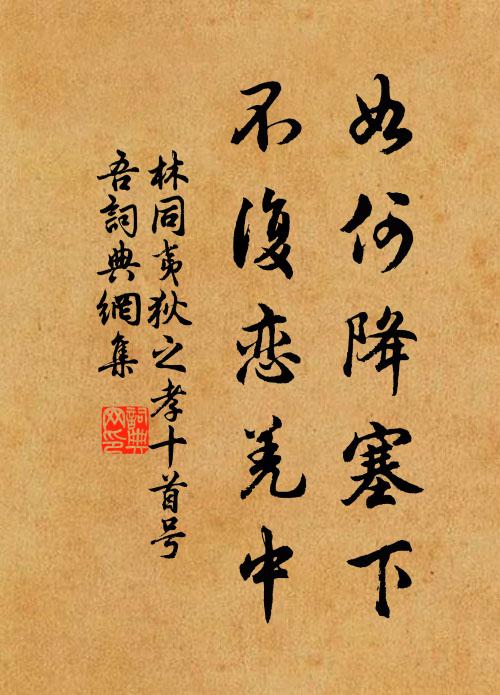 如何降塞下
不復恋羌中
林同夷狄之孝十首号
吾詞典網集
詞典
网印